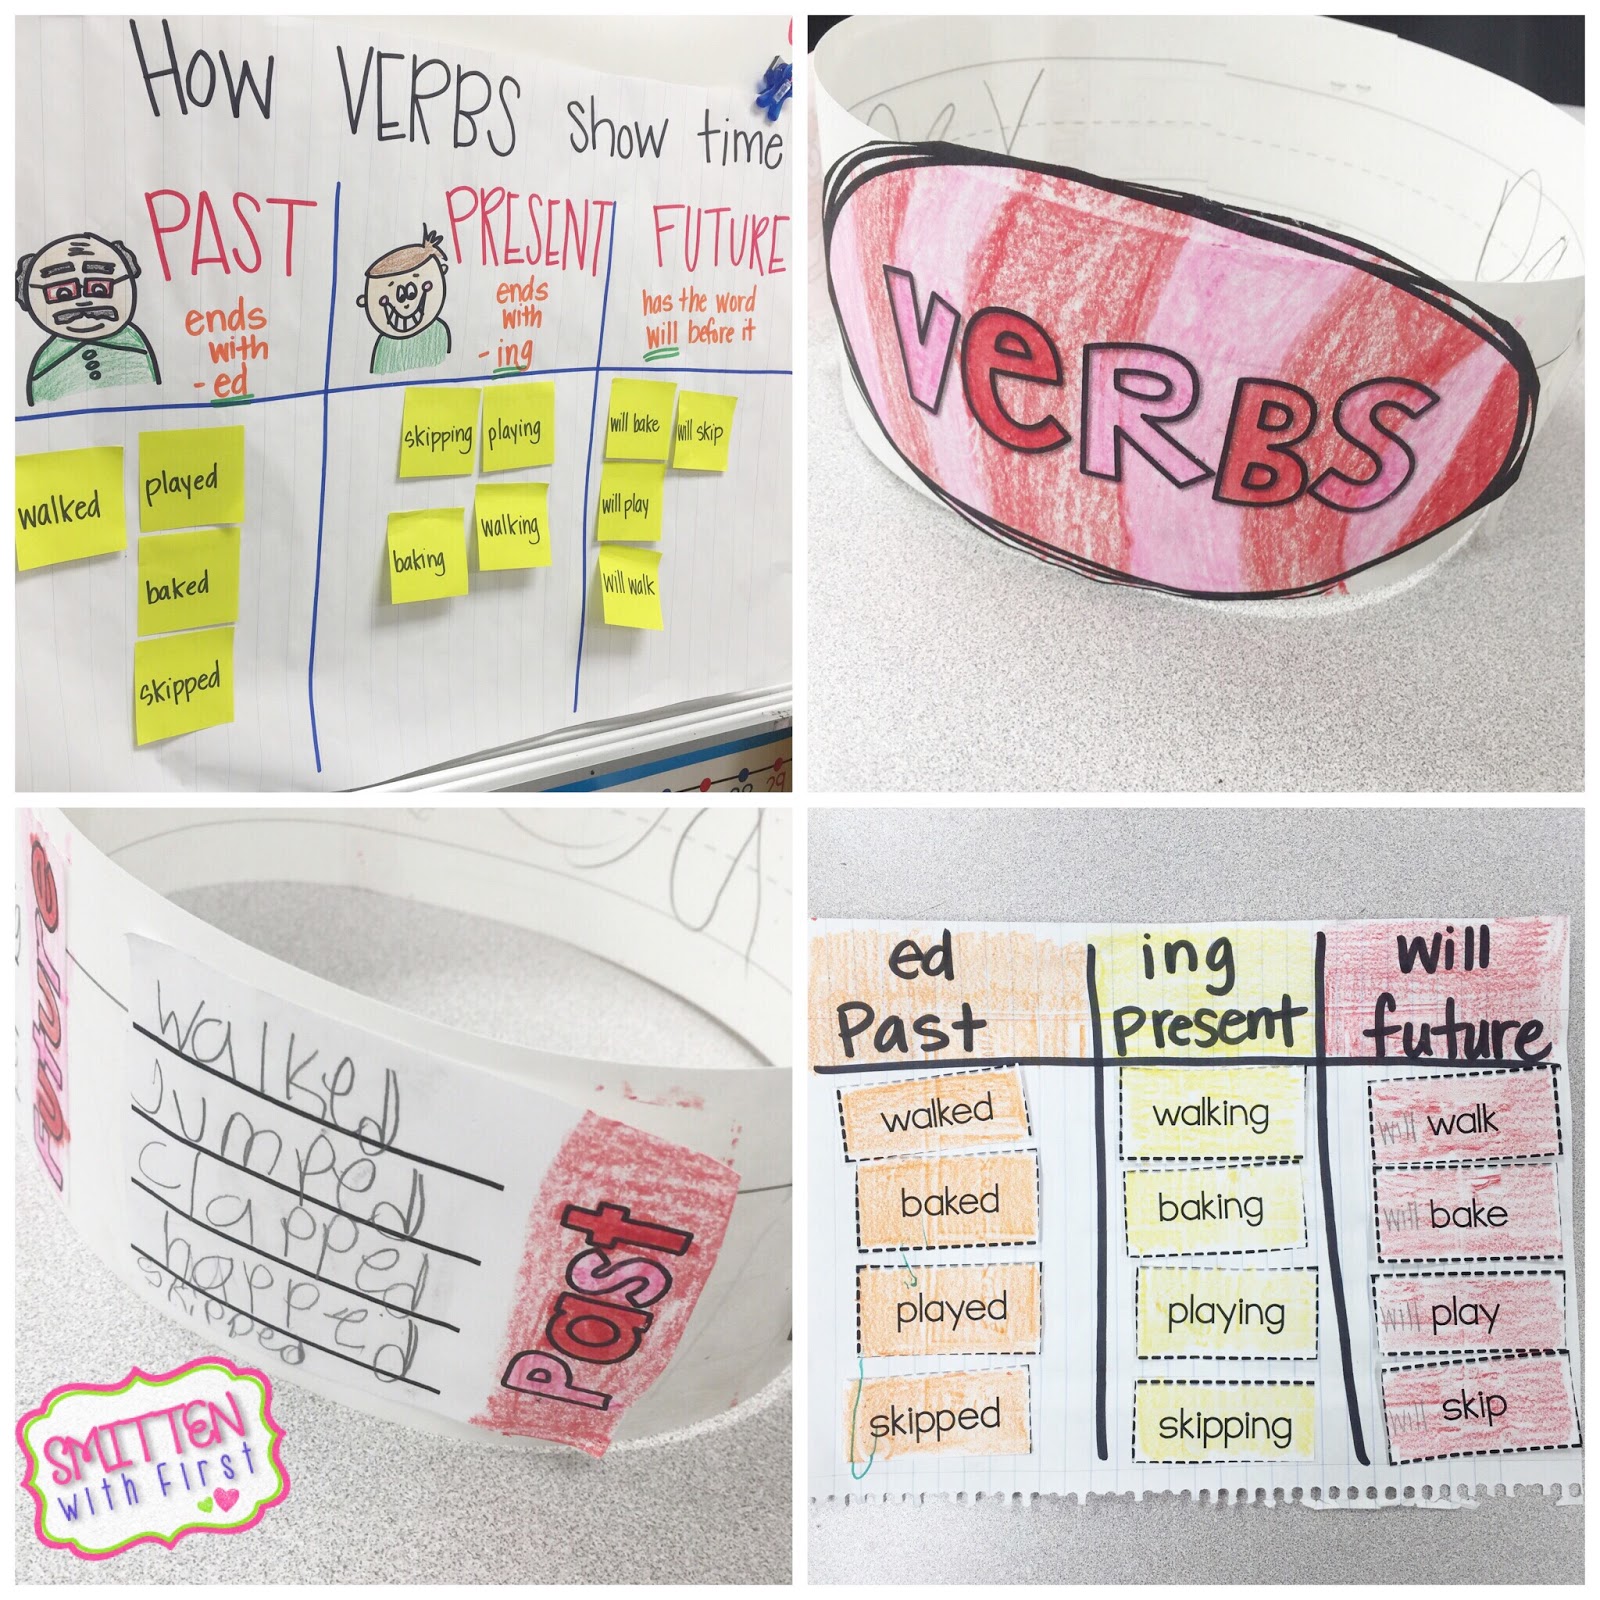 How VERBS show time
PAST
ends
with
- ed
PRESENT
ends
with
- ing
FUTURE
has the word
will before it
walked
played
baked
skipped
skipping
playing
baking
walking
will bake
will skip
will play
will walk
29
VERBS
Future
walked
Jumped
clapped
happ-d
skipped
Past
SMITTEN
with First
ed
Past
ing
present
will
future
walked
walking
will walk
baked
baking
will bake
played
playing
will play
skipped
skipping
will skip